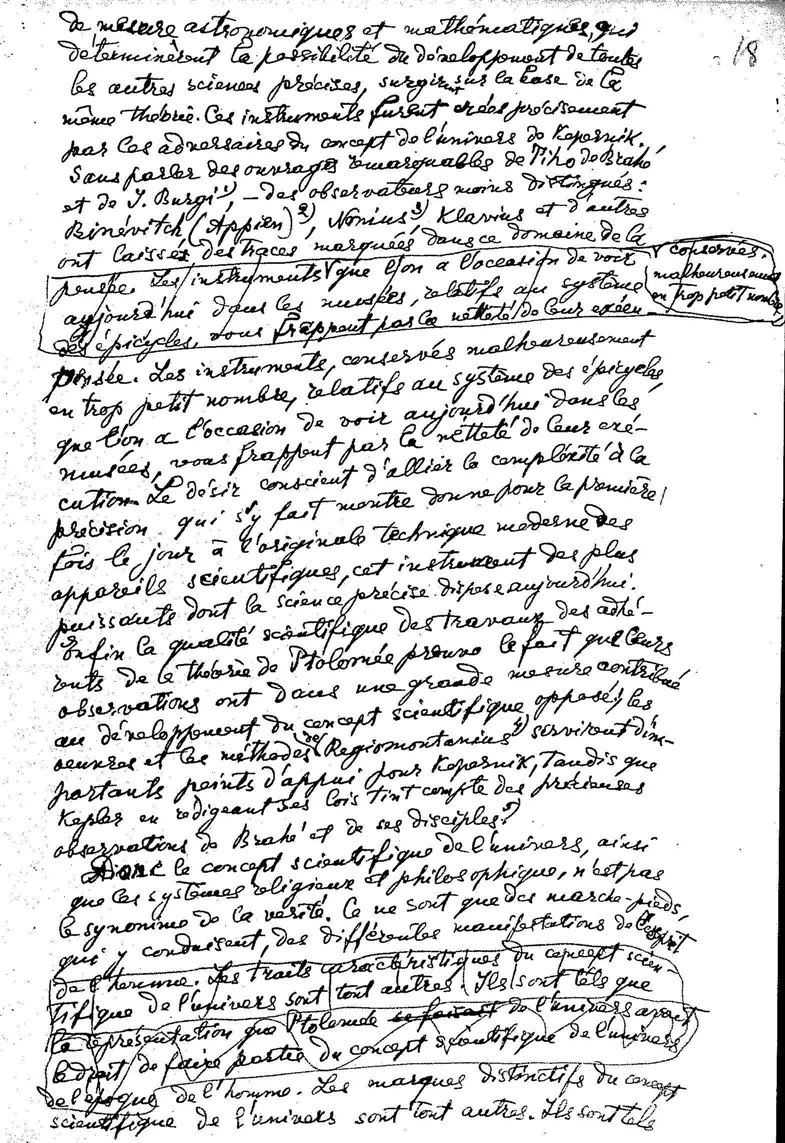 18
de mesure astronomiques et mathématiques, qui
déterminèrent la possibilité du développement de toutes
les autres sciences précises, surgirent sur la base de la
même théorie. Ces instruments furent créés précisement
par les adversaires du concept de l'univers de Kopernik.
Sans parler des ouvrages remarquables de Tiho de Brahé
et de J. Burgi 1), – des observateurs moins distingués:
Binévitch (Appien) 2), Nonius 3) Klavius et d'autres
ont laissés des traces marquées dans ce domaine de la
pensée. Les instruments √ que l'on a l'occasion de voir
√ conservés
malheureusement
en trop petit nombre,
aujourd'hui dans les musées, relatifs au système
des épicycles, vous frappent par la nètteté de leur exécu-
pensée. Les instruments, conservés malheureusement
en trop petit nombre, relatifs au système des épicycles,
que l'on a l'occasion de voir aujourd'hui dans les
musées, vous frappent par la nètteté de leur exé-
cution. Le désir conscient d'allier la compléxité à la
précision qui s'y fait montre donne pour la première
fois le jour à l'originale technique moderne des
appareils scientifiques, cet instrument des plus
puissants dont la science précise dispose aujourd'hui.
Enfin la qualité scientifique des travaux des adhé-
rents de le théorie de Ptolomée prouve le fait que leurs
observations ont dans une grande mesure contribué
au développement du concept scientifique opposé; les
oeuvres et les méthodes de Regiomontanius 4) servirent d'im-
portants points d'appui pour Kopernik, tandis que
Kepler en rédigeant ses lois tint compte des précieuses
observations de Brahé et de ses disciples. 5)
Donc le concept scientifique de l'univers, ainsi
que les systèmes religieux et philosophique, n'est pas
le synonime de la vérité. Ce ne sont que des marche-pieds,
qui y conduisent, des différentes manifestations de l'esprit
de l'homme. Les traits caractéristiques du concept scien-
tifique de l'univers sont tout autres. Ils sont tels que
la représentation que Ptolomée se faisait de l'univers avait
le droit de faire partie du concept scientifique de l'univers
de l'époque de l'homme. Les marques distinctifs du concept
scientifique de l'univers sont tout autres. Ils sont tels